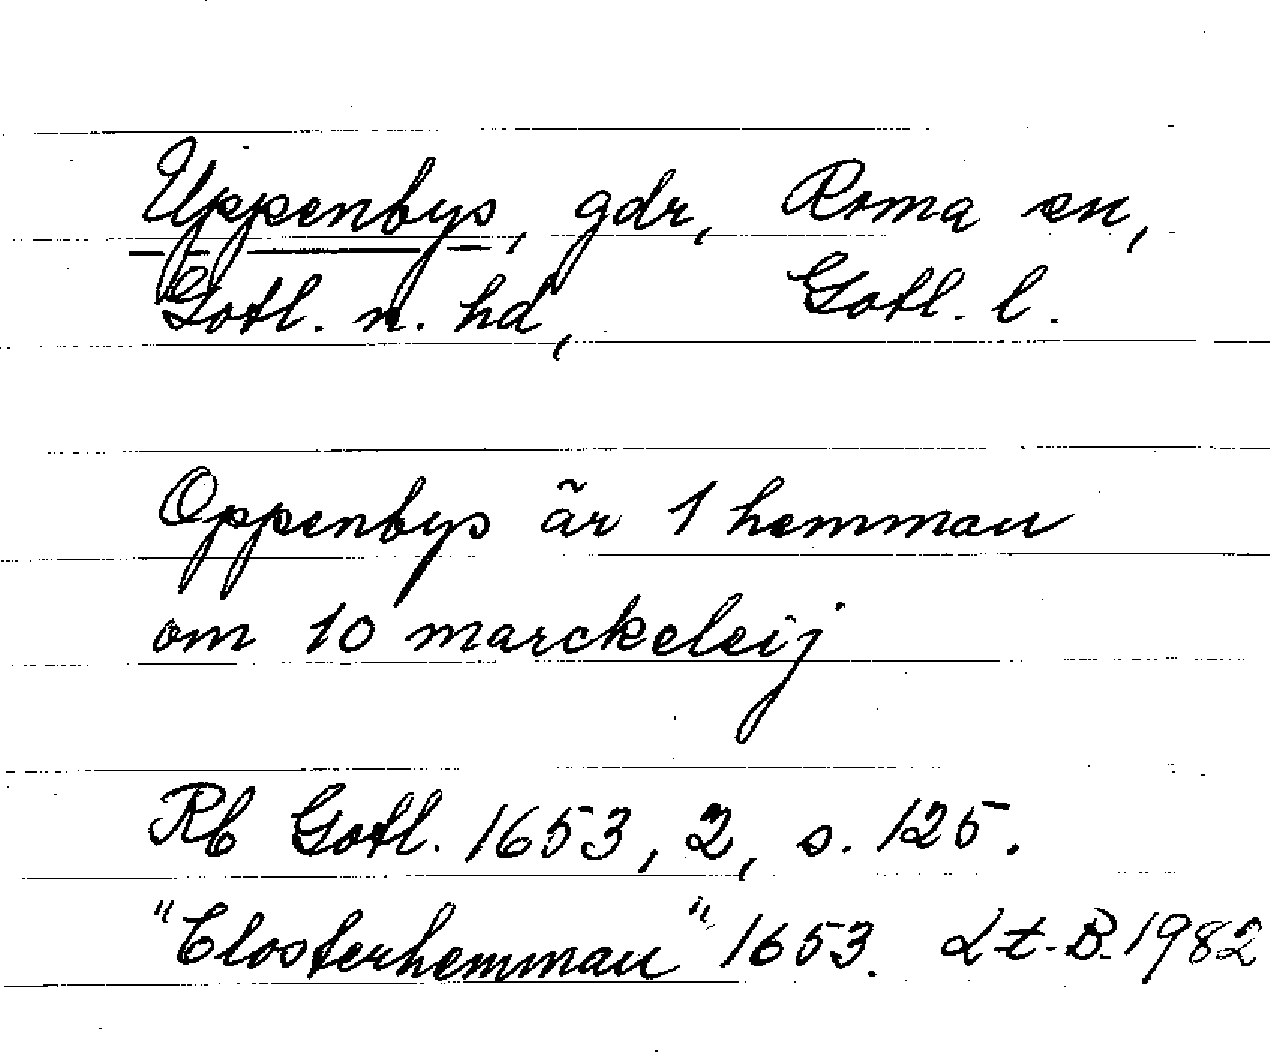 Uppenbys, gdr, Roma sn,
Gotl. n. hd, Gotl. l.
Oppenbys är 1 hemman
om 10 marckeleij
Rb Gotl. 1653, 2, s. 125.
"Closterhemman" 1653. Lt-B. 1982